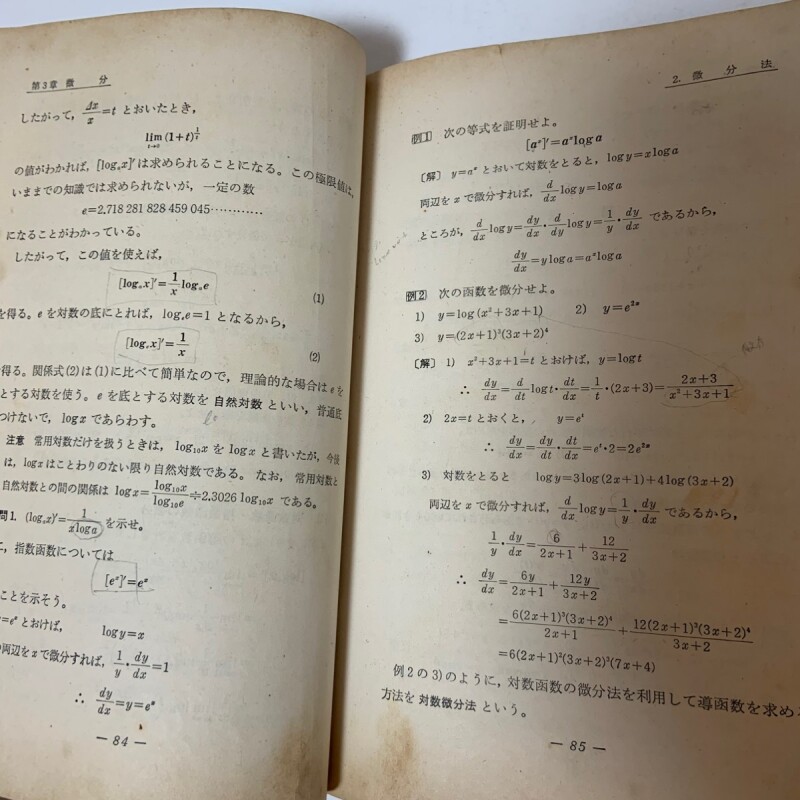 第3章 微 分
したがって, Δx/x=t とおいたとき,
lim (1+t)^{1/t}
t→0
の値がわかれば, [logₐx]′は求められることになる。この極限値は,
いままでの知識では求められないが, 一定の数
e=2.718 281 828 459 045…………
になることがわかっている。
したがって, この値を使えば,
[logₐx]′=1/x logₐe (1)
を得る。e を対数の底にとれば, logₑe=1 となるから,
[logₑx]′=1/x (2)
得る。関係式(2)は(1)に比べて簡単なので, 理論的な場合は e を
とする対数を使う。e を底とする対数を 自然対数 といい, 普通底
つけないで, logx であらわす。
注意 常用対数だけを扱うときは, log₁₀x を logx と書いたが, 今後
は, logx はことわりのない限り自然対数である。なお, 常用対数と
自然対数との間の関係は logx=log₁₀x/log₁₀e≑2.3026 log₁₀x である。
問1. (logₐx)′=1/(x log a) を示せ。
に, 指数函数については
[eˣ]′=eˣ
ことを示そう。
=eˣ とおけば, logy=x
両辺を x で微分すれば, 1/y・dy/dx=1
∴ dy/dx=y=eˣ
— 84 —
2. 微 分 法
例1 次の等式を証明せよ。
[aˣ]′=aˣloga
〔解〕 y=aˣ とおいて対数をとると, logy=xloga
両辺を x で微分すれば, d/dx logy=loga
ところが, d/dx logy=dy/dx・d/dy logy=1/y・dy/dx であるから,
dy/dx=yloga=aˣloga
例2 次の函数を微分せよ。
1) y=log(x²+3x+1) 2) y=e²ˣ
3) y=(2x+1)³(3x+2)⁴
〔解〕 1) x²+3x+1=t とおけば, y=logt
∴ dy/dx=d/dt logt・dt/dx=1/t・(2x+3)=(2x+3)/(x²+3x+1)
2) 2x=t とおくと, y=eᵗ
∴ dy/dx=dy/dt・dt/dx=eᵗ・2=2e²ˣ
3) 対数をとると logy=3log(2x+1)+4log(3x+2)
両辺を x で微分すれば, d/dx logy=1/y・dy/dx であるから,
1/y・dy/dx=6/(2x+1)+12/(3x+2)
∴ dy/dx=6y/(2x+1)+12y/(3x+2)
=6(2x+1)³(3x+2)⁴/(2x+1)+12(2x+1)³(3x+2)⁴/(3x+2)
=6(2x+1)²(3x+2)³(7x+4)
例2の3)のように, 対数函数の微分法を利用して導函数を求める
方法を 対数微分法 という。
— 85 —